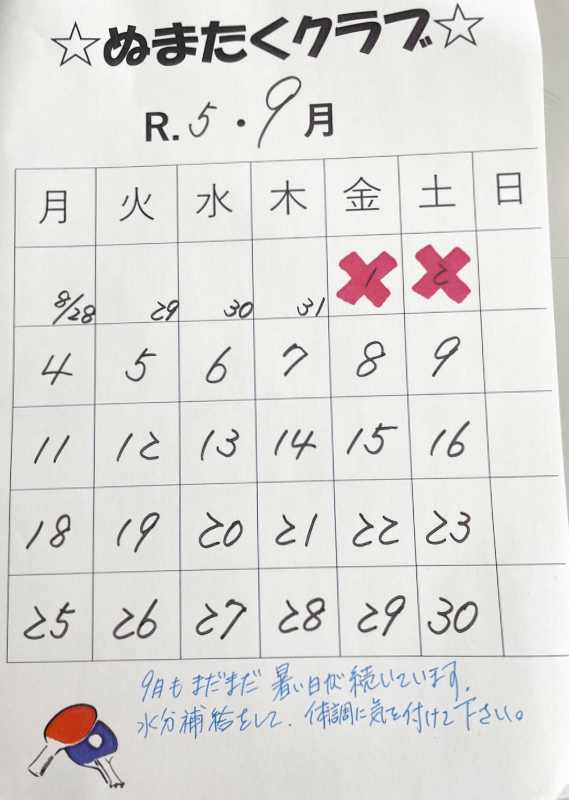 ☆ぬまたくクラブ☆
R.5・9月
月 火 水 木 金 土 日
8/28 29 30 31 1 2
4 5 6 7 8 9
11 12 13 14 15 16
18 19 20 21 22 23
25 26 27 28 29 30
9月もまだまだ暑い日が続いています。
水分補給をして、体調に気を付けて下さい。